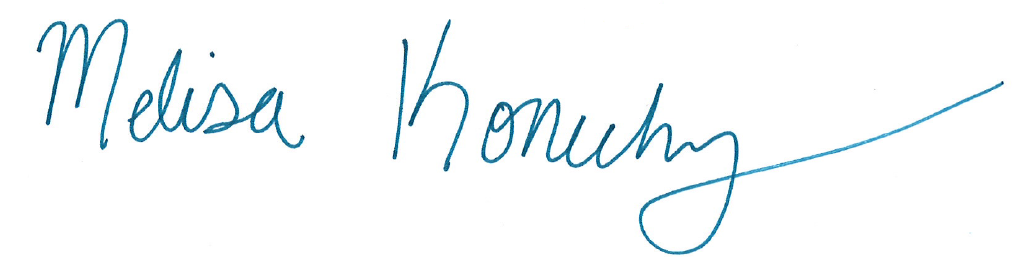 Melisa Konechy